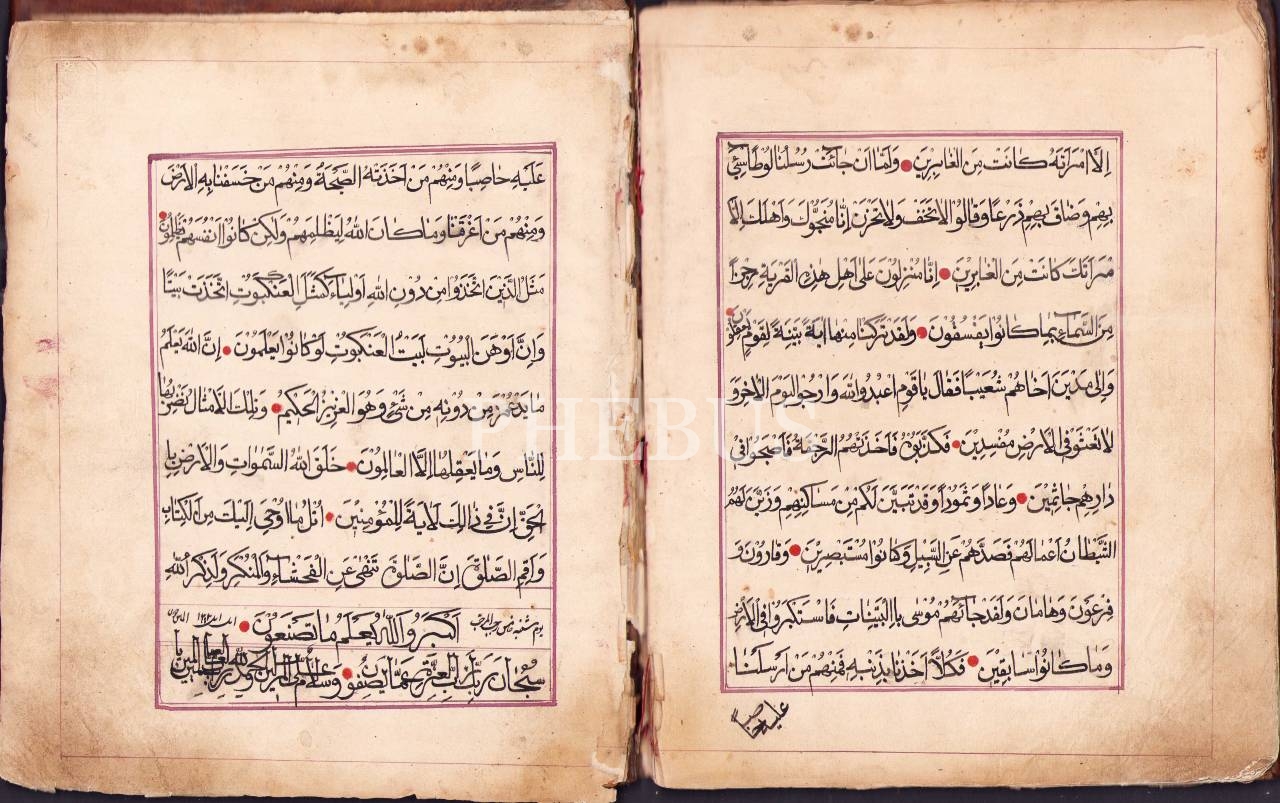 اِلَّا امْرَاَتَهُ كانَتْ مِنَ الْغابِرينَ وَلَمّا اَنْ جائَتْ رُسُلُنا لُوطًا سيئَ
بِهِمْ وَضاقَ بِهِمْ ذَرْعًا وَقالُوا لاتَخَفْ وَلاتَحْزَنْ اِنّا مُنَجُّوكَ وَاَهْلَكَ اِلَّا
مْرَاَتَكَ كانَتْ مِنَ الْغابِرينَ اِنّا مُنْزِلُونَ عَلى اَهْلِ هذِهِ الْقَرْيَةِ رِجْزًا
مِنَ السَّماءِ بِما كانُوا يَفْسُقُونَ وَلَقَدْ تَرَكْنا مِنْها ايَةً بَيِّنَةً لِقَوْمٍ يَعْقِلُونَ
وَاِلى مَدْيَنَ اَخاهُمْ شُعَيْبًا فَقالَ ياقَوْمِ اعْبُدُوا اللّهَ وَارْجُوا الْيَوْمَ الْاخِرَ وَ
لاتَعْثَوْا فِى الْاَرْضِ مُفْسِدينَ فَكَذَّبُوهُ فَاَخَذَتْهُمُ الرَّجْفَةُ فَاَصْبَحُوا فى
دارِهِمْ جاثِمينَ وَعادًا وَثَمُودًا وَقَدْ تَبَيَّنَ لَكُمْ مِنْ مَساكِنِهِمْ وَزَيَّنَ لَهُمُ
الشَّيْطانُ اَعْمالَهُمْ فَصَدَّهُمْ عَنِ السَّبيلِ وَكانُوا مُسْتَبْصِرينَ وَقارُونَ وَ
فِرْعَوْنَ وَهامانَ وَلَقَدْ جائَهُمْ مُوسى بِالْبَيِّناتِ فَاسْتَكْبَرُوا فِى الْاَرْضِ
وَما كانُوا سابِقينَ فَكُلًّا اَخَذْنا بِذَنْبِهِ فَمِنْهُمْ مَنْ اَرْسَلْنا
عليه حاصبا
عَلَيْهِ حاصِبًا وَمِنْهُمْ مَنْ اَخَذَتْهُ الصَّيْحَةُ وَمِنْهُمْ مَنْ خَسَفْنا بِهِ الْاَرْضَ
وَمِنْهُمْ مَنْ اَغْرَقْنا وَما كانَ اللّهُ لِيَظْلِمَهُمْ وَلكِنْ كانُوا اَنْفُسَهُمْ يَظْلِمُونَ
مَثَلُ الَّذينَ اتَّخَذُوا مِنْ دُونِ اللّهِ اَوْلِياءَ كَمَثَلِ الْعَنْكَبُوتِ اتَّخَذَتْ بَيْتًا
وَاِنَّ اَوْهَنَ الْبُيُوتِ لَبَيْتُ الْعَنْكَبُوتِ لَوْ كانُوا يَعْلَمُونَ اِنَّ اللّهَ يَعْلَمُ
ما يَدْعُونَ مِنْ دُونِهِ مِنْ شَىْءٍ وَهُوَ الْعَزيزُ الْحَكيمُ وَتِلْكَ الْاَمْثالُ نَضْرِبُها
لِلنّاسِ وَما يَعْقِلُها اِلَّا الْعالِمُونَ خَلَقَ اللّهُ السَّمواتِ وَالْاَرْضَ بِا
لْحَقِّ اِنَّ فى ذالِكَ لَايَةً لِلْمُؤْمِنينَ اُتْلُ ما اُوحِىَ اِلَيْكَ مِنَ الْكِتابِ
وَاَقِمِ الصَّلوةَ اِنَّ الصَّلوةَ تَنْهى عَنِ الْفَحْشاءِ وَالْمُنْكَرِ وَلَذِكْرُ اللّهِ
اَكْبَرُ وَاللّهُ يَعْلَمُ ما تَصْنَعُونَ
سُبْحانَ رَبِّكَ رَبِّ الْعِزَّةِ عَمّا يَصِفُونَ وَسَلامٌ عَلَى الْمُرْسَلينَ وَالْحَمْدُ لِلّهِ رَبِّ الْعالَمينَ
PHEBUS